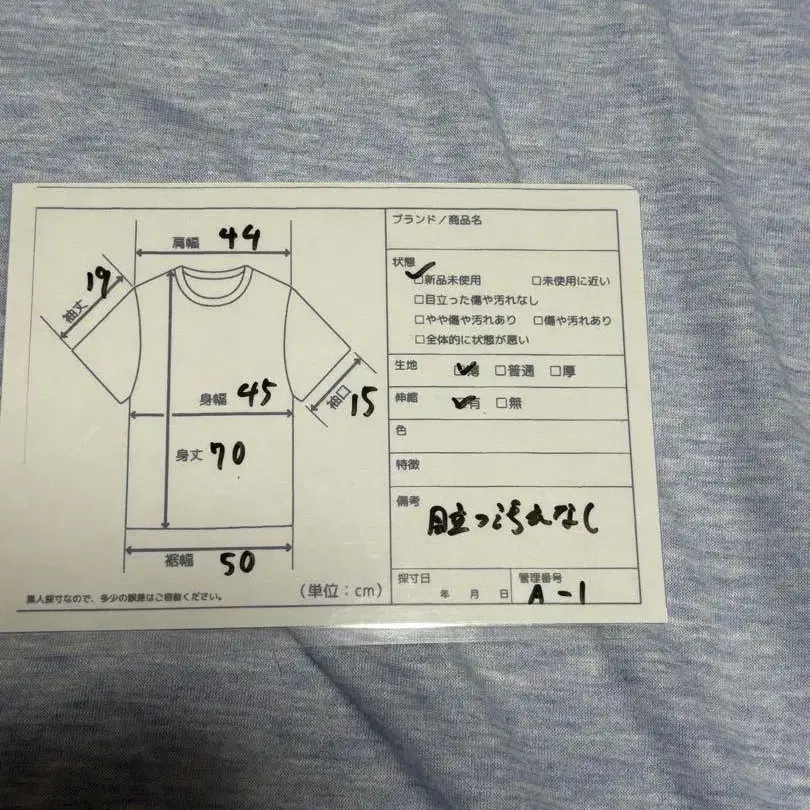 肩幅 44
19
袖丈
身幅 45
袖口 15
身丈 70
裾幅 50
(単位:cm)
素人採寸なので、多少の誤差はご容赦ください。
ブランド/商品名
状態
☑新品未使用 □未使用に近い
□目立った傷や汚れなし
□やや傷や汚れあり □傷や汚れあり
□全体的に状態が悪い
生地 ☑薄 □普通 □厚
伸縮 ☑有 □無
色
特徴
備考
目立つ汚れなし
採寸日
年 月 日
管理番号
A-1